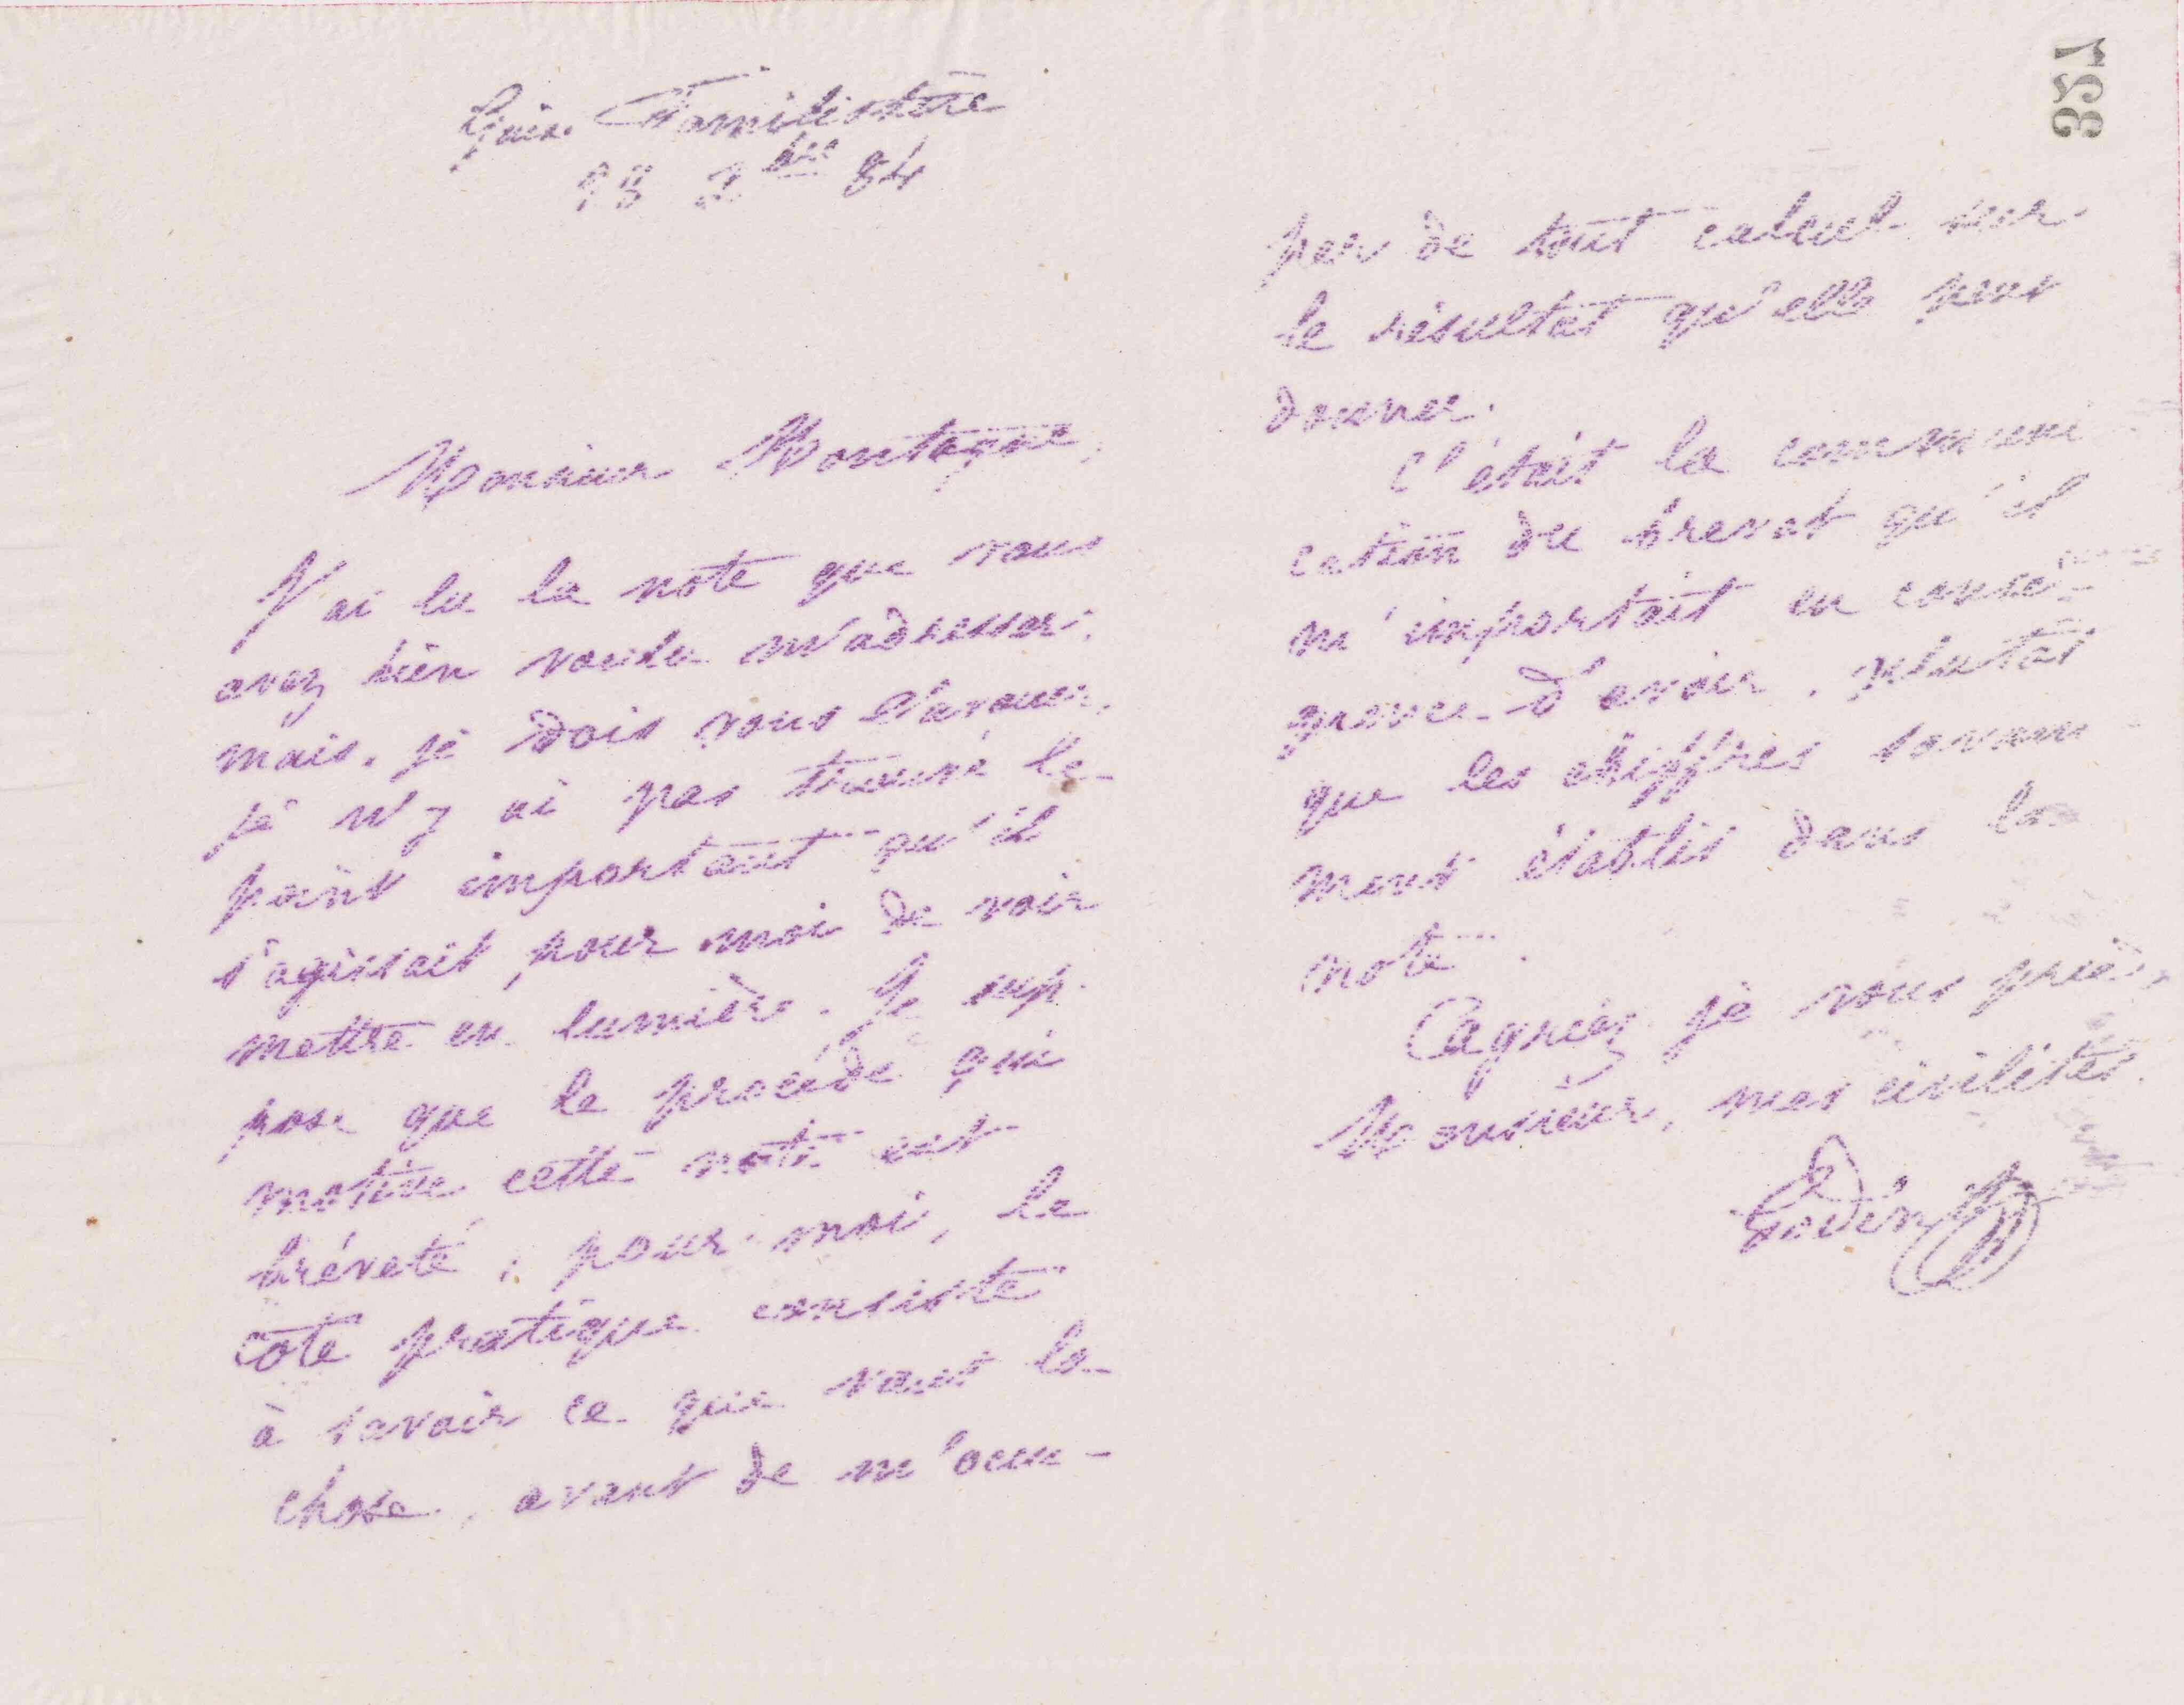 Guise Familistère
13 Xbre 84
Monsieur Montagne,
J'ai lu la note que vous
avez bien voulu m'adresser,
mais, je dois vous l'avouer,
je n'y ai pas trouvé le
point important qu'il
s'agissait, pour moi de voir
mettre en lumière. Je sup-
pose que le procédé qui
motive cette note est
bréveté ; pour moi, le
côté pratique consiste
à savoir ce que vaut la
chose, avant de m'occu-
321
per de tout calcul sur
le résultat qu'elle peut
donner.
C'était la communi
cation du brevet qu'il
m'importait en consé-
quence d'avoir, plutôt
que les chiffres savam-
ment établis dans la
note.
Agréez je vous prie,
Monsieur, mes civilités.
Godin